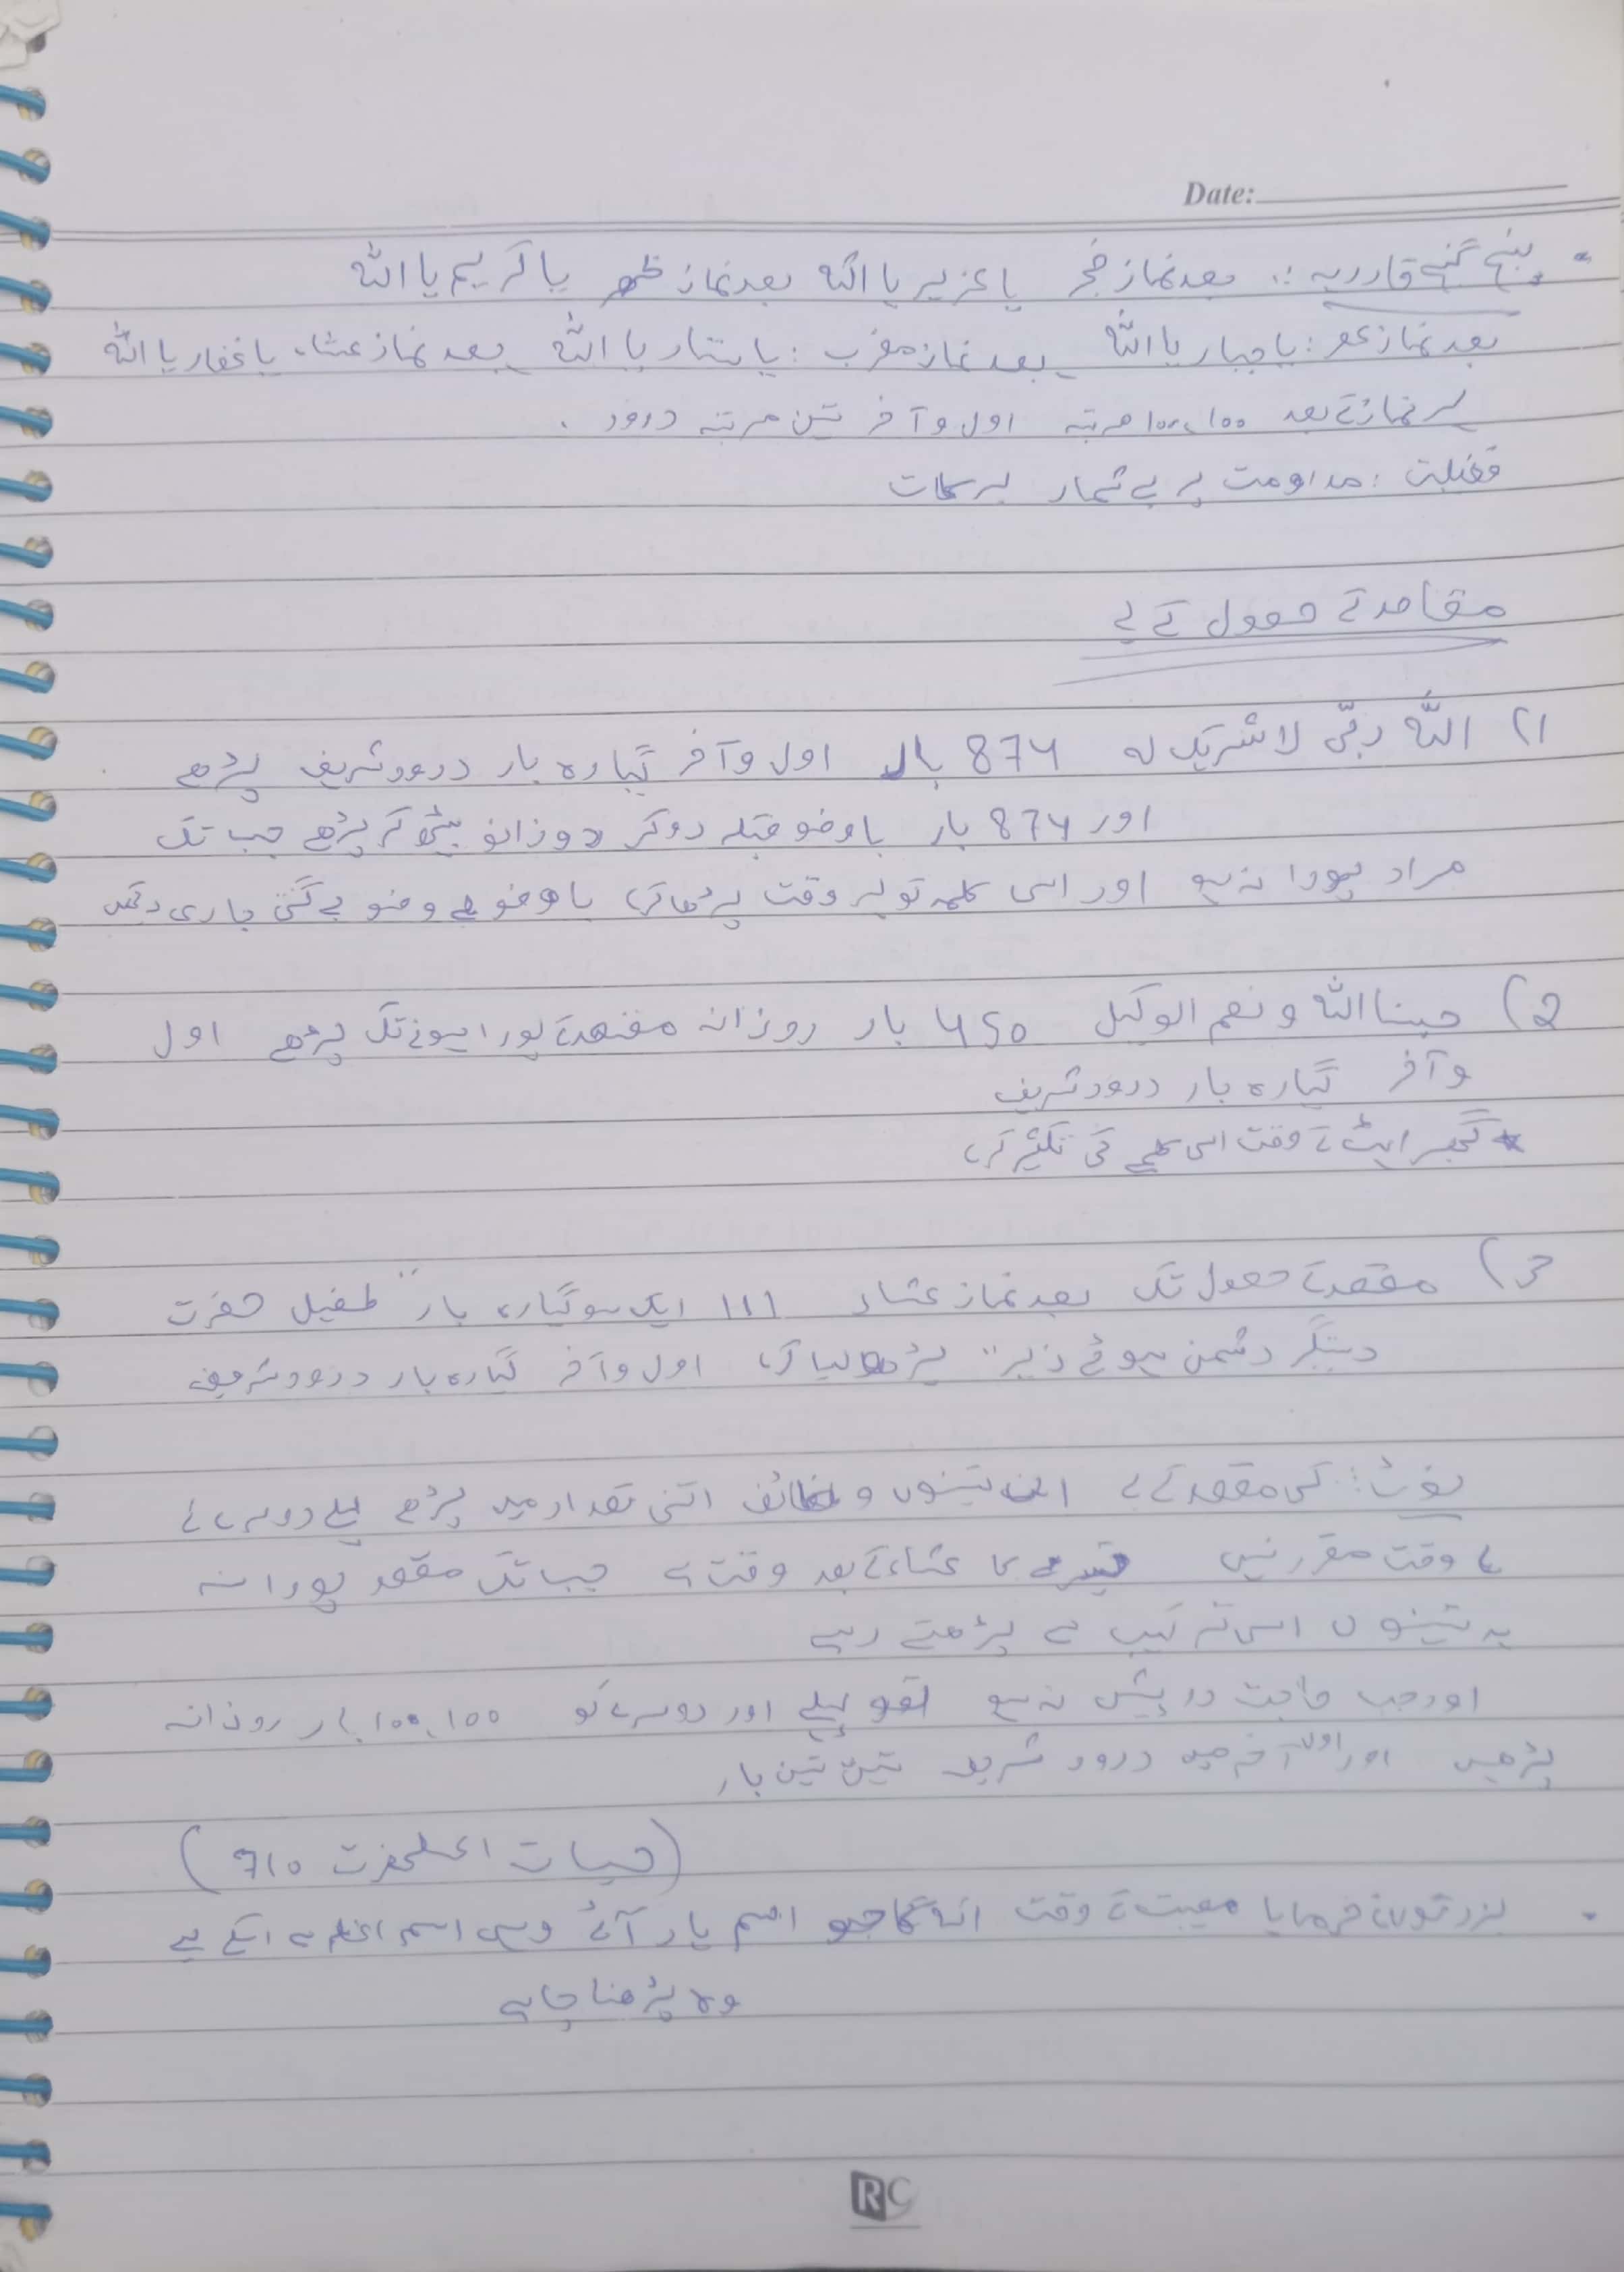 Date:
• پنج گنج قادریہ :: بعد نماز فجر یا عزیز یا اللہ بعد نماز ظہر یا کریم یا اللہ
بعد نماز عصر : یا جبار یا اللہ بعد نماز مغرب : یا ستار یا اللہ بعد نماز عشاء یا غفار یا اللہ
ہر نماز کے بعد 100،100 مرتبہ اول و آخر تین مرتبہ درود .
فضیلت : مداومت پر بے شمار برکات
مقاصد کے حصول کے لیے
1) اللہ ربّی لا شریک لہ 874 بار اول و آخر گیارہ بار درود شریف پڑھے
اور 874 بار باوضو قبلہ رو کر دوزانو بیٹھ کر پڑھے جب تک
مراد پورا نہ ہو اور اسی کلمہ کو ہر وقت پڑھا کریں باوضو بے وضو بے گنتی جاری رکھیں
2) حسبنا اللہ و نعم الوکیل 450 بار روزانہ مقصد کے پورا ہونے تک پڑھے اول
و آخر گیارہ بار درود شریف
* گھبراہٹ کے وقت اسی کلمے کی تکثیر کریں
3) مقصد کے حصول تک بعد نماز عشاء 111 ایک سو گیارہ بار " طفیل حضرت
دستگیر دشمن ہوئے زیر " پڑھ لیا کریں اول و آخر گیارہ بار درود شریف
نوٹ :: کسی مقصد کے لیے ان تینوں وظائف اتنی تعداد میں پڑھے پہلے دوسرے کے
لے وقت مقرر نہیں تیسرے کا عشاء کے بعد وقت ہے جب تک مقصد پورا نہ
یہ تینوں اسی ترکیب سے پڑھتے رہیے
اور جب حاجت در پیش نہ ہو تو پہلے اور دوسرے کو 100،100 بار روزانہ
پڑھیں اور اول آخر میں درود شریف تین تین بار
(حیات اعلحضرت 710)
• بزرگوں نے فرمایا مصیبت کے وقت اللہ کا جو اسم یاد آئے وہی اسم اعظم ہے اسکے لیے
وہ پڑھنا چاہیے
RC